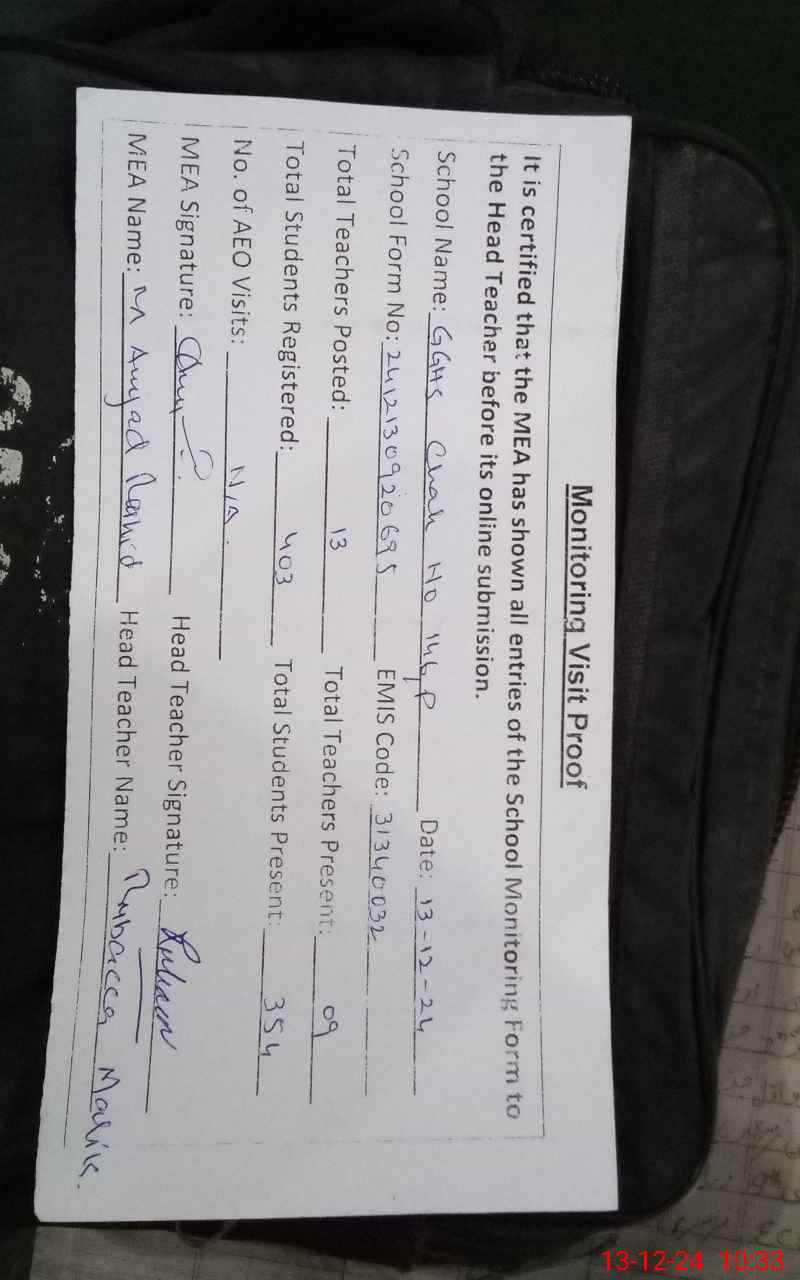 Monitoring Visit Proof
It is certified that the MEA has shown all entries of the School Monitoring Form to
the Head Teacher before its online submission.
School Name: GGHS Chak No 146/P Date: 13-12-24
School Form No: 2412130920695 EMIS Code: 31340032
Total Teachers Posted: 13 Total Teachers Present: 09
Total Students Registered: 403 Total Students Present: 354
No. of AEO Visits: N/A.
MEA Signature: Head Teacher Signature:
MEA Name: M Amjad Rashid Head Teacher Name: Malik.
13-12-24 10:33